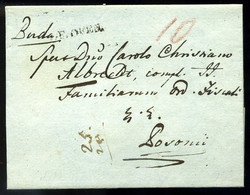 Buda V. OFEN. 10
Spect. Dno Carolo Christiano
Albrecht, compl. II.
Familiarum Ord. Fiscali
Posonii